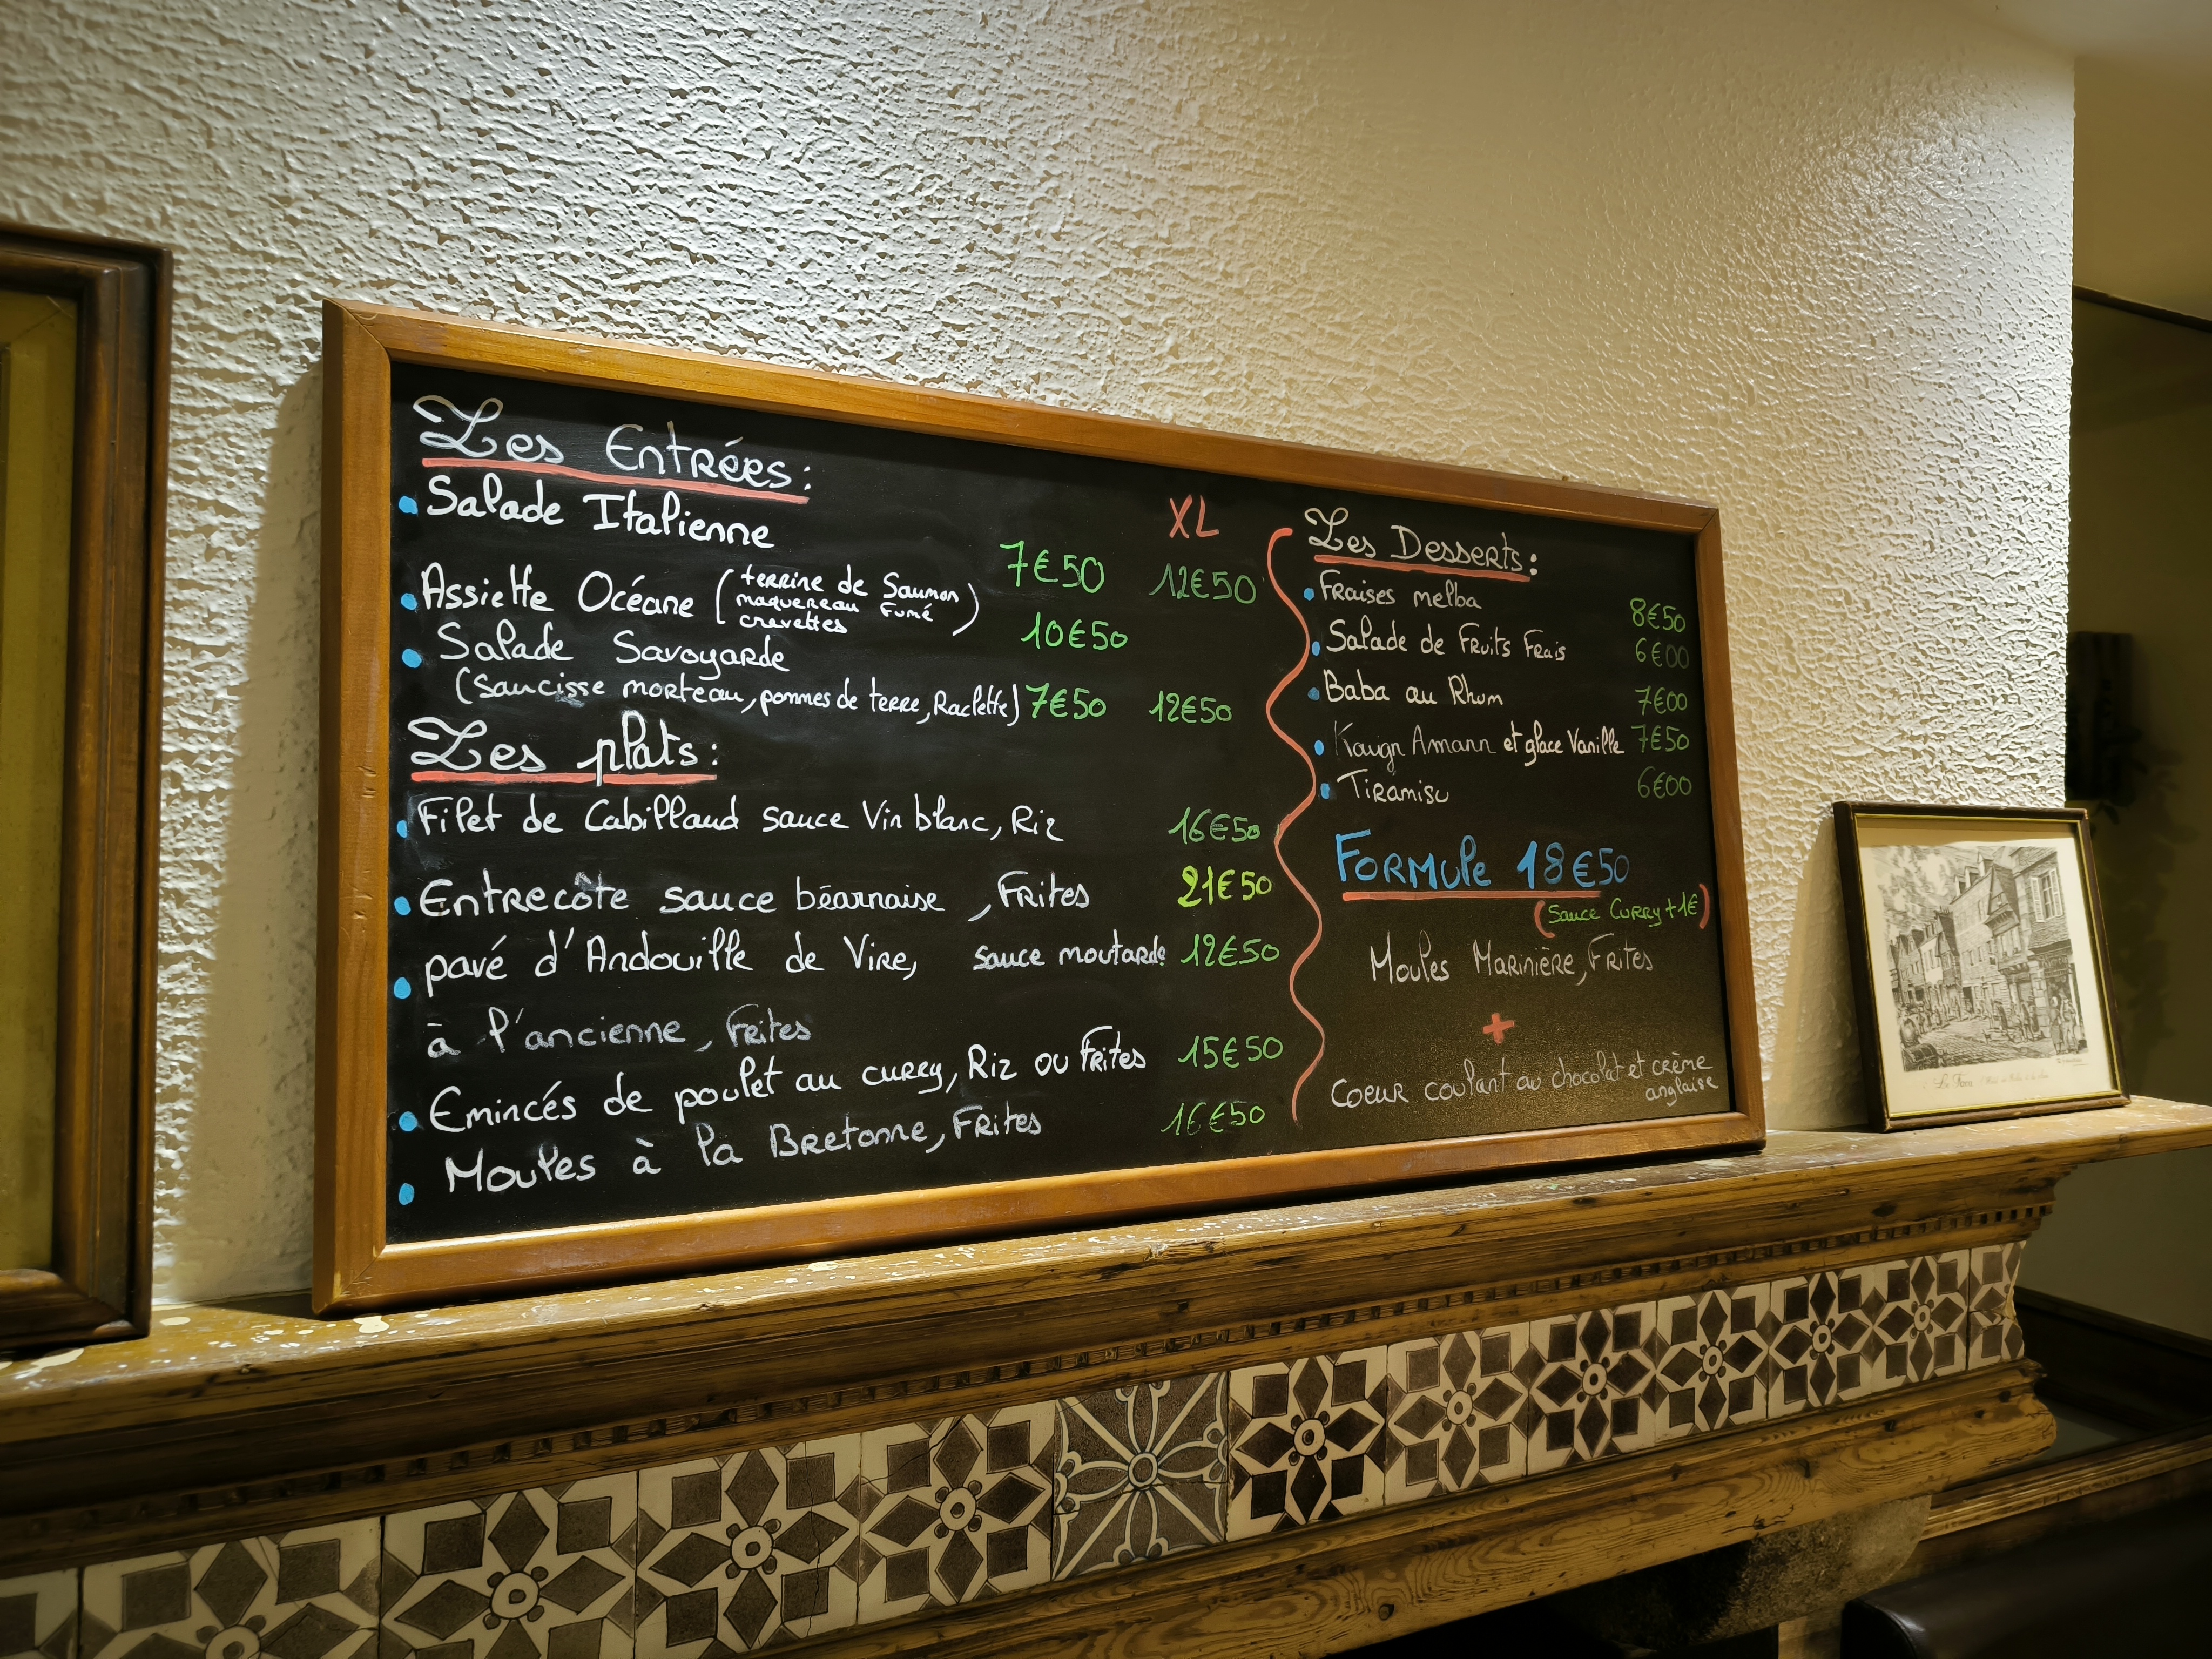 Les Entrées:
Salade Italienne
XL
7€50 12€50
Assiette Océane (terrine de Saumon
maquereau Fumé
crevettes)
10€50
Salade Savoyarde
(Saucisse morteau, pommes de terre, Raclette) 7€50 12€50
Les plats:
Filet de Cabillaud sauce Vin blanc, Riz 16€50
Entrecôte sauce béarnaise, Frites 21€50
pavé d'Andouille de Vire, sauce moutarde 12€50
à l'ancienne, Frites
Emincés de poulet au curry, Riz ou Frites 15€50
Moules à la Bretonne, Frites 16€50
Les Desserts:
Fraises melba 8€50
Salade de Fruits Frais 6€00
Baba au Rhum 7€00
Kouign Amann et glace Vanille 7€50
Tiramisu 6€00
Formule 18€50
(Sauce Curry +1€)
Moules Marinière, Frites
+
Coeur coulant au chocolat et crème
anglaise